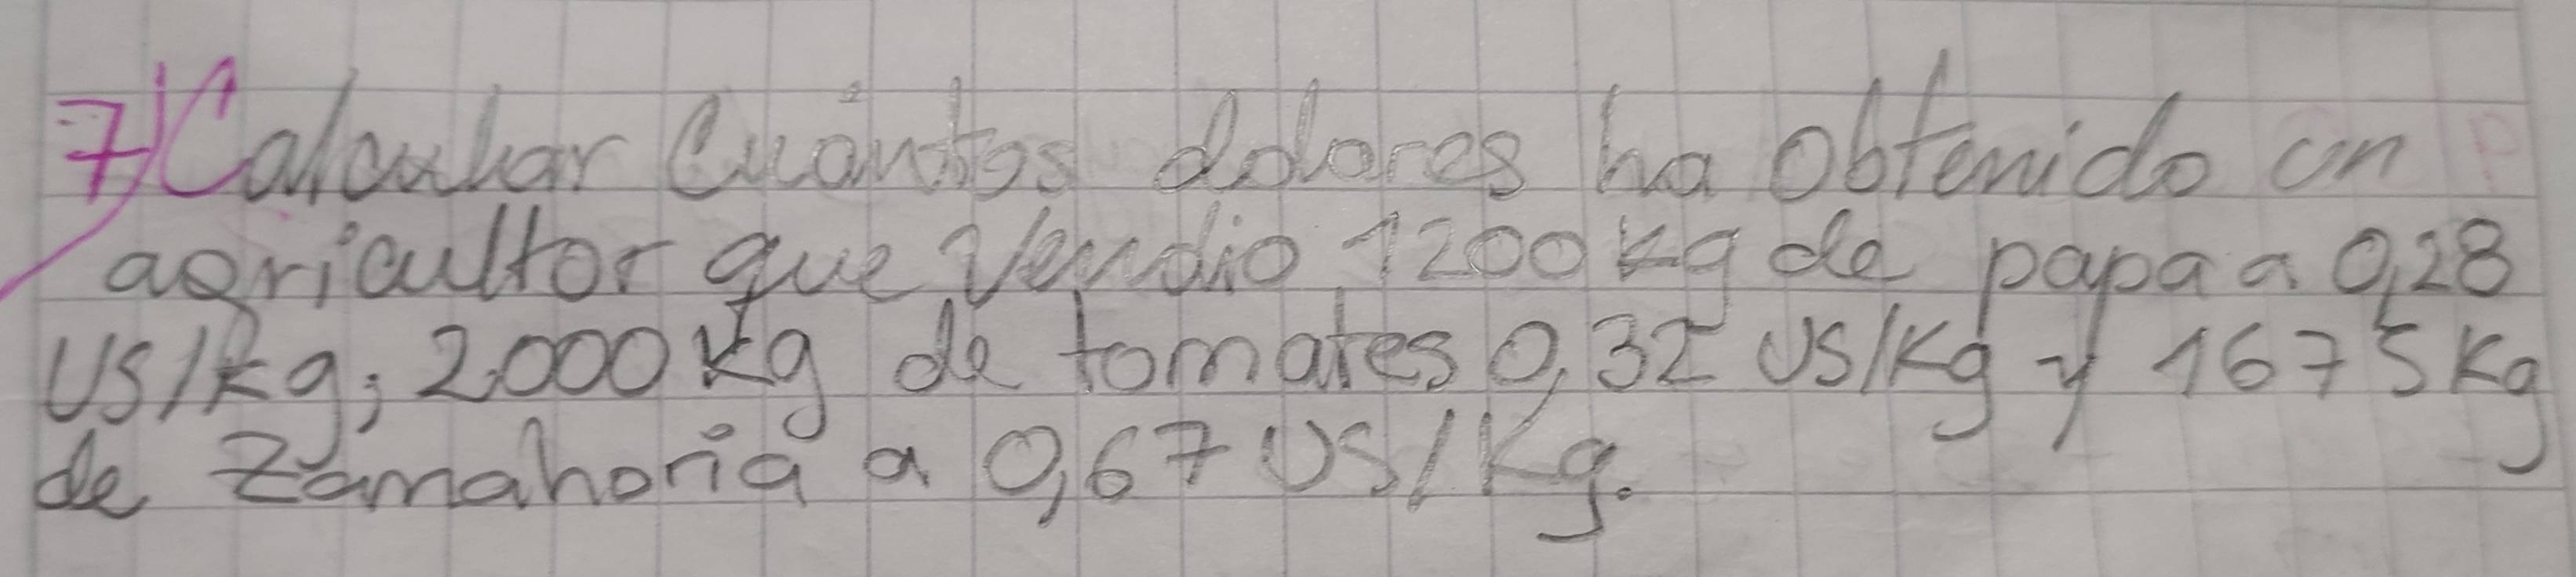 7) Calcular Cuántos dolares ha obtenido un
agricultor que Vendio 1200 kg de papa a 0,28
US/kg; 2.000 kg de tomates 0,32 US/Kg y 1675 Kg
de Zamahoria a 0,67 US/Kg.